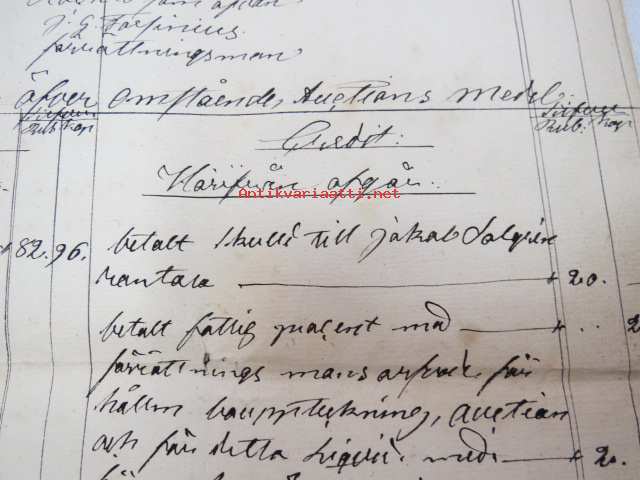 J. G. Forsinius.
förrättningsman
öfver omstående, Auctions medel.
Silfver Silfver
Rub. Kop Rub. Kop
Credit:
Härifrån afgår:
Antikvariaatti.net
82. 96. betalt skuld till jakob Salqvist
rantala 20.
betalt fattig procent med
förrättnings mans arfvode för
hållen bouppteckning, auction
och för detta med 2.